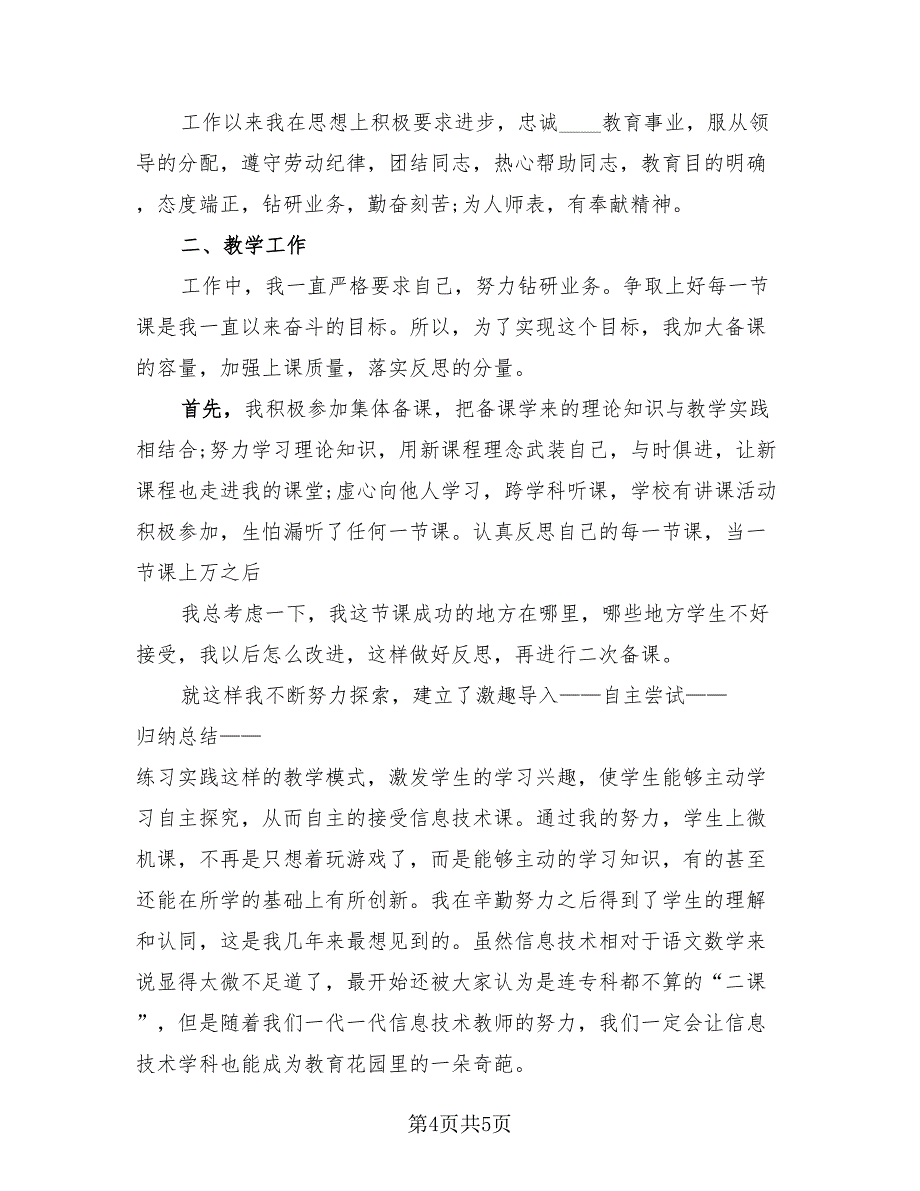 工作以来我在思想上积极要求进步，忠诚____教育事业，服从领
导的分配，遵守劳动纪律，团结同志，热心帮助同志，教育目的明确
，态度端正，钻研业务，勤奋刻苦;为人师表，有奉献精神。
二、教学工作
工作中，我一直严格要求自己，努力钻研业务。争取上好每一节
课是我一直以来奋斗的目标。所以，为了实现这个目标，我加大备课
的容量，加强上课质量，落实反思的分量。
首先，我积极参加集体备课，把备课学来的理论知识与教学实践
相结合;努力学习理论知识，用新课程理念武装自己，与时俱进，让新
课程也走进我的课堂;虚心向他人学习，跨学科听课，学校有讲课活动
积极参加，生怕漏听了任何一节课。认真反思自己的每一节课，当一
节课上万之后
我总考虑一下，我这节课成功的地方在哪里，哪些地方学生不好
接受，我以后怎么改进，这样做好反思，再进行二次备课。
就这样我不断努力探索，建立了激趣导入——自主尝试——
归纳总结——
练习实践这样的教学模式，激发学生的学习兴趣，使学生能够主动学
习自主探究，从而自主的接受信息技术课。通过我的努力，学生上微
机课，不再是只想着玩游戏了，而是能够主动的学习知识，有的甚至
还能在所学的基础上有所创新。我在辛勤努力之后得到了学生的理解
和认同，这是我几年来最想见到的。虽然信息技术相对于语文数学来
说显得太微不足道了，最开始还被大家认为是连专科都不算的“二课
”，但是随着我们一代一代信息技术教师的努力，我们一定会让信息
技术学科也能成为教育花园里的一朵奇葩。
第4页共5页